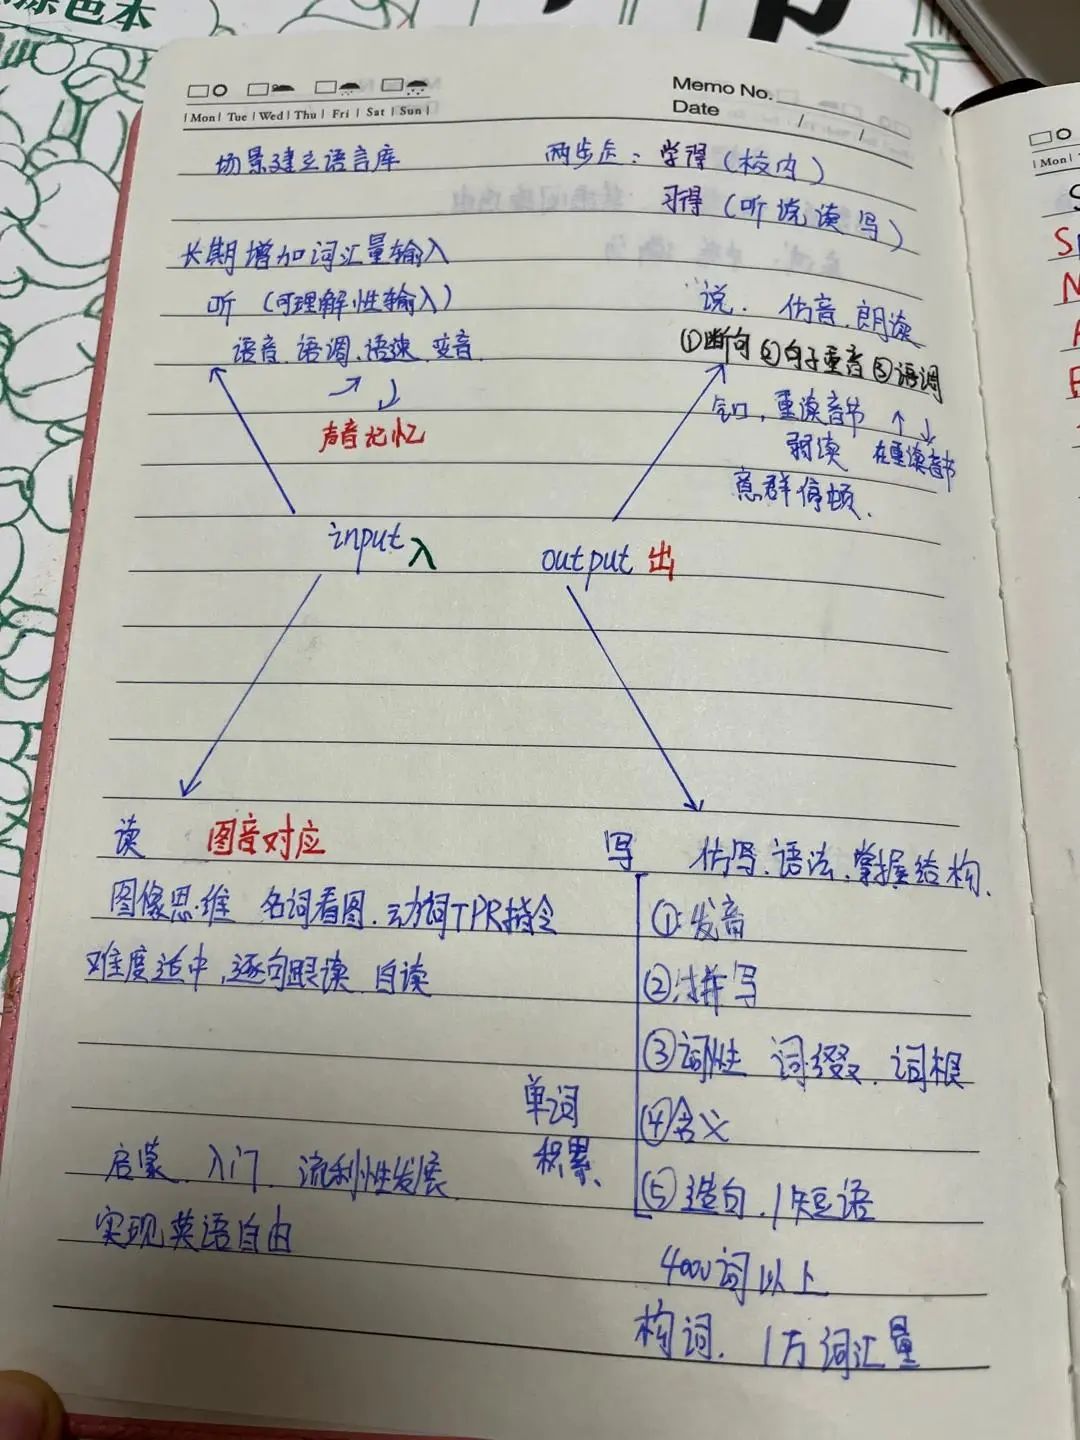 涂色本
Memo No.
Mon Tue Wed Thu Fri Sat Sun
Date / /
场景建立语言库 两步走：学得（校内）
习得（听说读写）
长期增加词汇量输入
听（可理解性输入）
说. 仿音.朗读
语音.语调.语速.变音.
①断句②句子重音③语调
声音记忆
重读音节
弱读 在重读音节
意群停顿.
input 入
output 出
读 图音对应
写 仿写.语法.掌握结构.
图像思维 名词看图.动词TPR指令
①发音
难度适中,逐句跟读.自读
②拼写
③词性 词缀.词根
单词
积累.
④含义
启蒙.入门.流利性发展.
⑤造句.短语
实现英语自由
4000词以上
构词. 1万词汇量
Mon